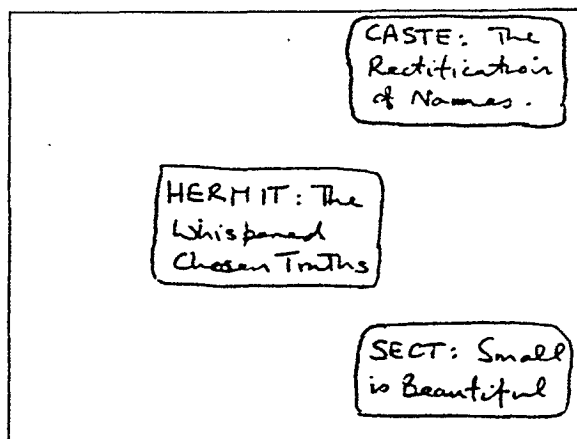 CASTE: The
Rectification
of Names.
HERMIT: The
Whispered
Chosen Truths
SECT: Small
is Beautiful